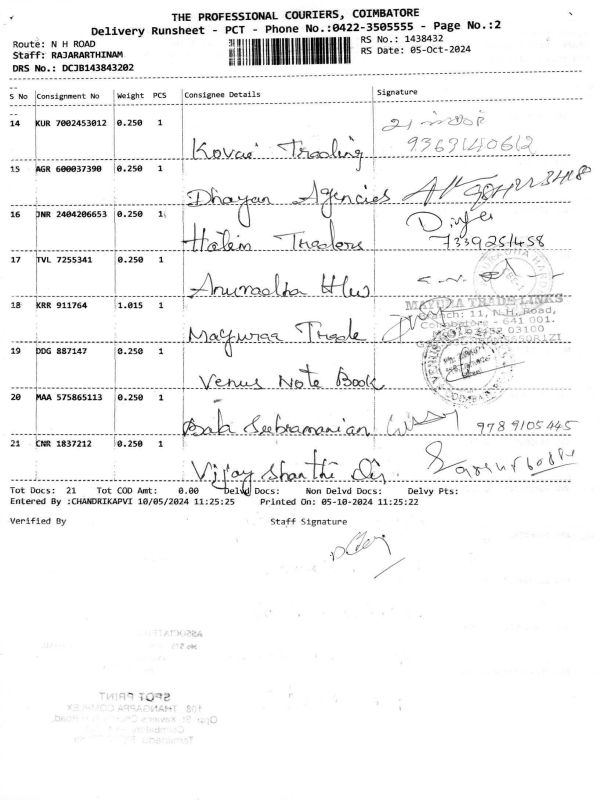 THE PROFESSIONAL COURIERS, COIMBATORE
Delivery Runsheet - PCT - Phone No.:0422-3505555 - Page No.:2
Route: N H ROAD
RS No.: 1438432
Staff: RAJARARTHINAM
RS Date: 05-Oct-2024
DRS No.: DCJB143843202
S No Consignment No Weight PCS Consignee Details Signature
14 KUR 7002453012 0.250 1
Kovai Trading
9363140612
15 AGR 600037390 0.250 1
Dhayan Agencies
16 JNR 2404206653 0.250 1
Hatim Traders
7339251458
17 TVL 7255341 0.250 1
Anuradha Hw
18 KRR 911764 1.015 1
Mayuraa Trade
MAYURA TRADE LINKS
11, N.H. Road,
Coimbatore - 641 001.
19 DDG 887147 0.250 1
Venus Note Book
20 MAA 575865113 0.250 1
Bala Subramanian
9789105445
21 CNR 1837212 0.250 1
Vijay Shanthi
Tot Docs: 21 Tot COD Amt: 0.00 Delvd Docs: Non Delvd Docs: Delvy Pts:
Entered By :CHANDRIKAPVI 10/05/2024 11:25:25 Printed On: 05-10-2024 11:25:22
Verified By Staff Signature
SPOT PRINT
108, THANGAPPA COMPLEX